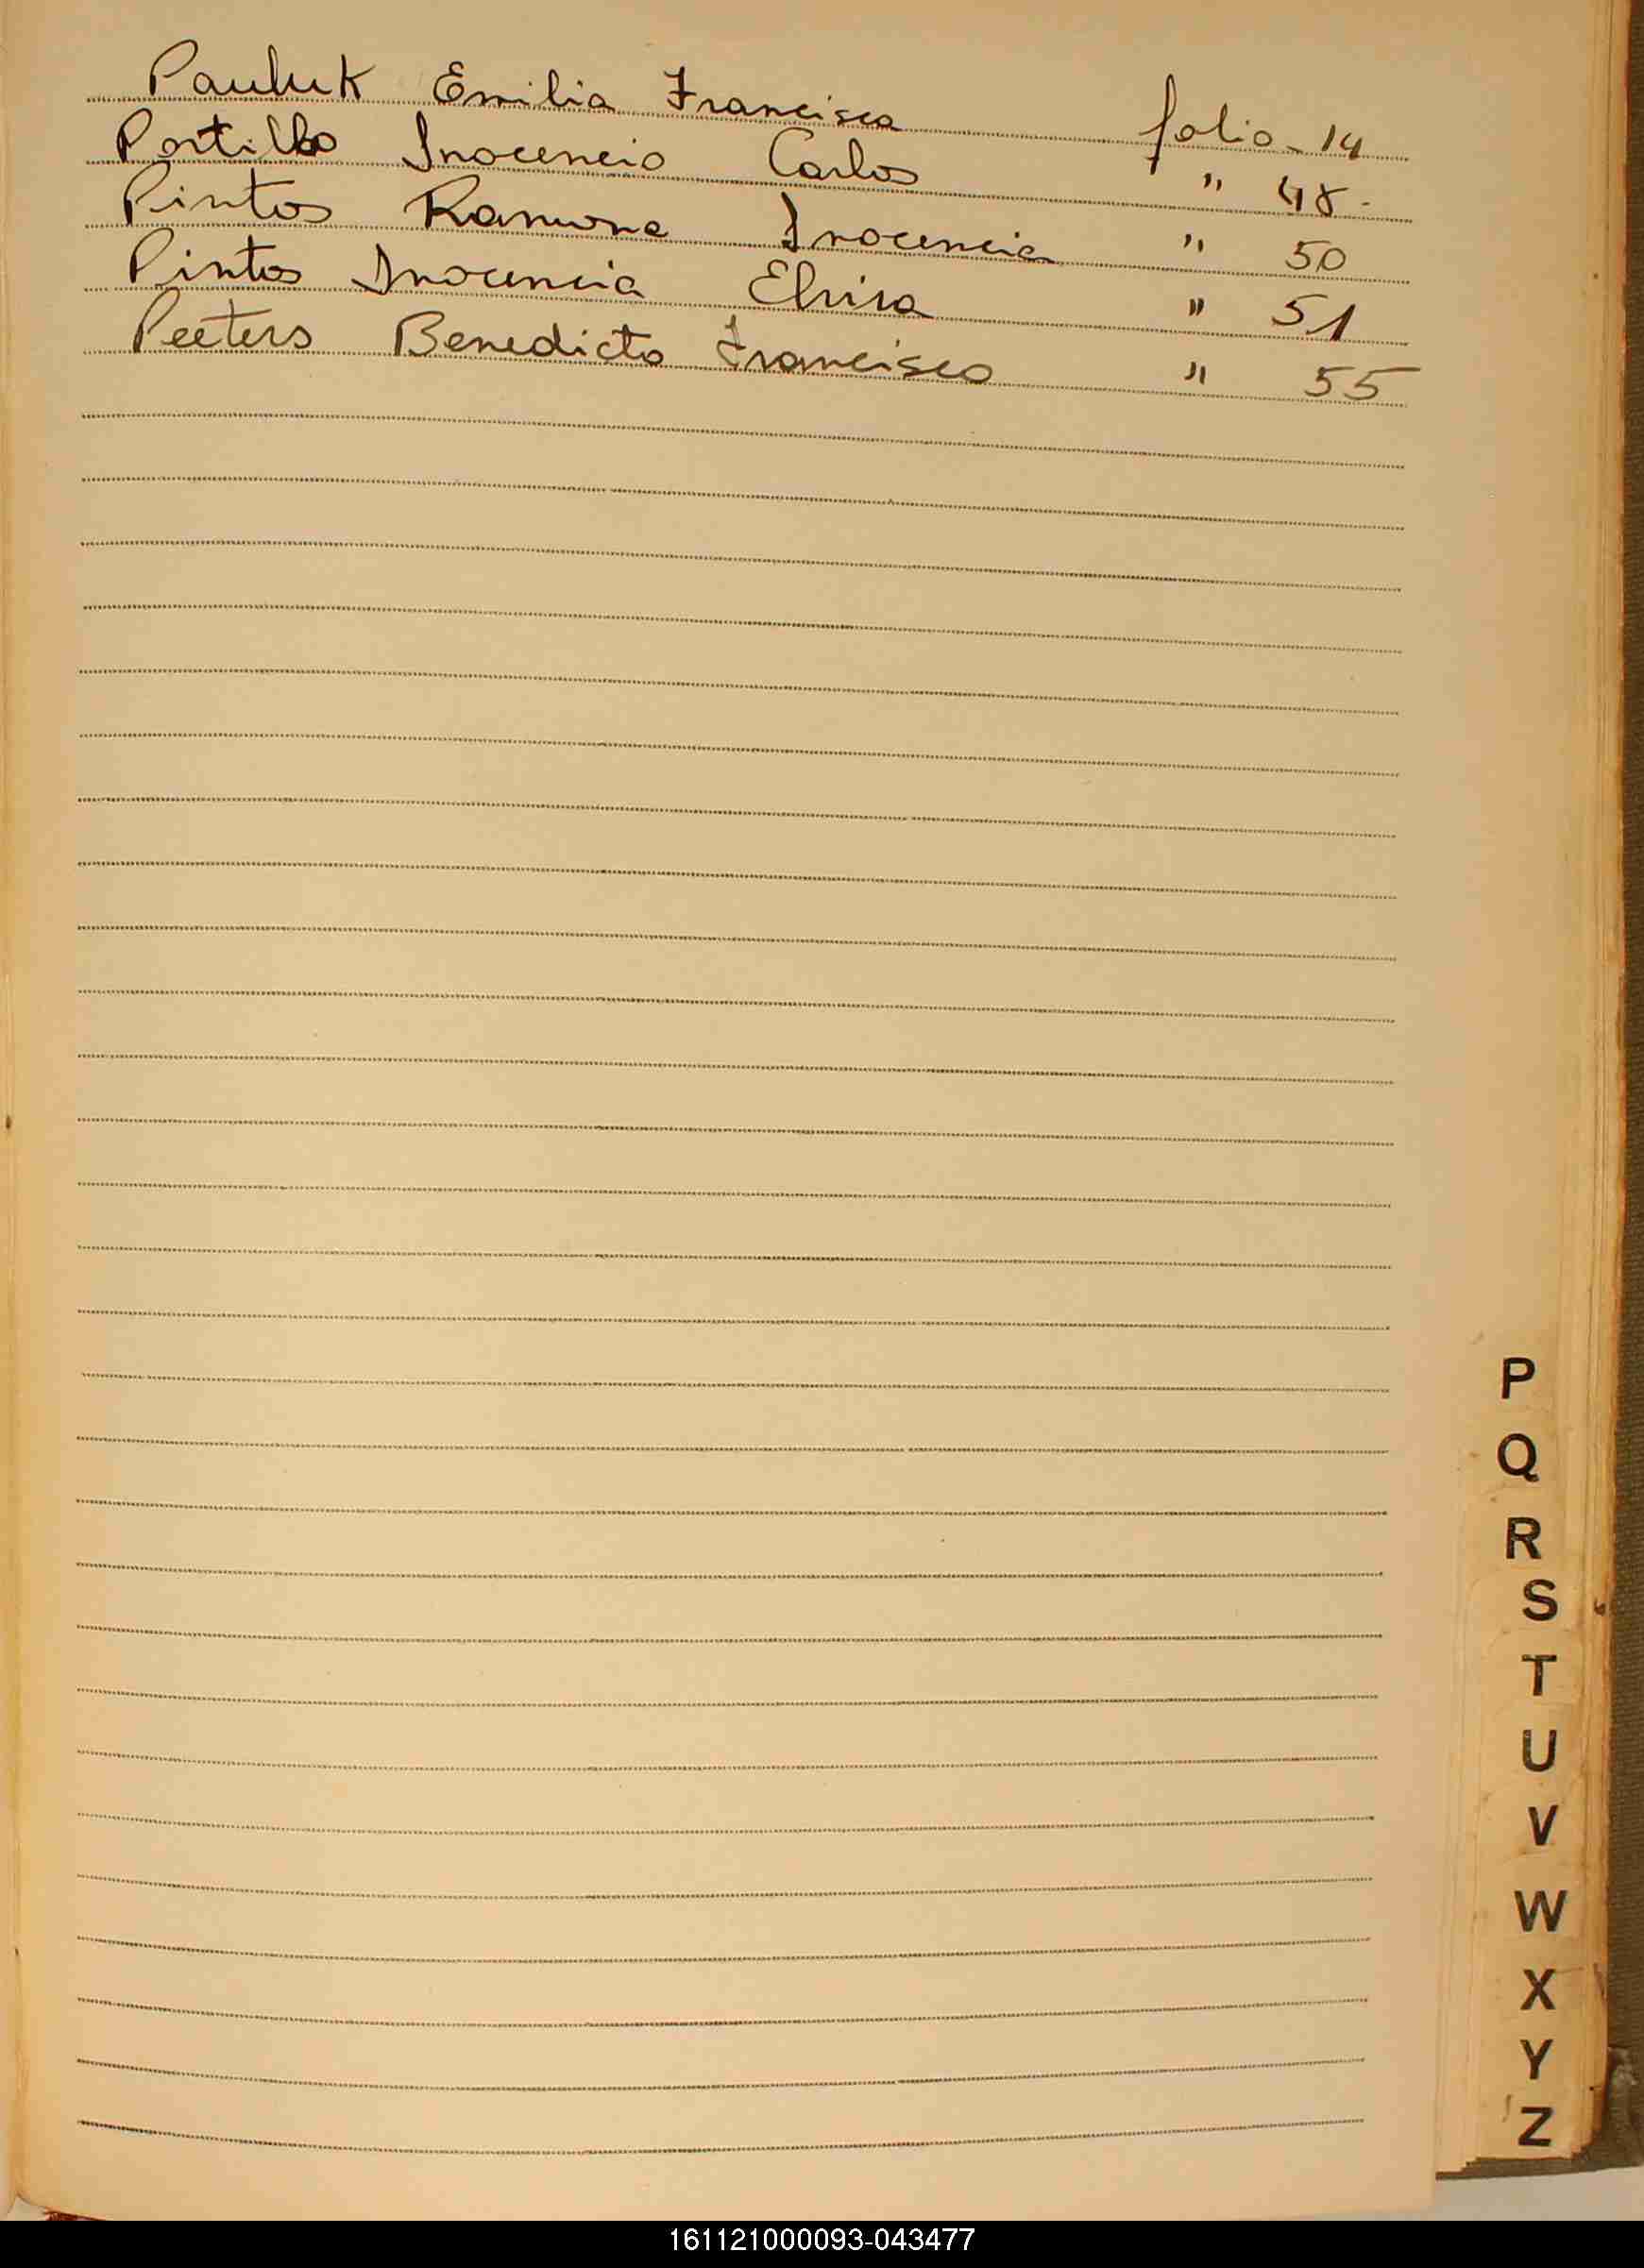 Pauluk Emilia Francisca folio - 14
Portillo Inocencio Carlos " 48 -
Pintos Ramona Inocencia " 50
Pintos Inocencia Elvira " 51
Peeters Benedicto Francisco " 55
P
Q
R
S
T
U
V
W
X
Y
Z
161121000093-043477